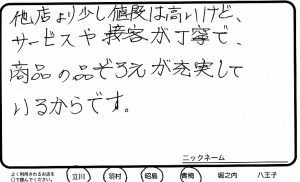 他店より少し値段は高いけど、
サービスや接客が丁寧で、
商品の品ぞろえが充実して
いるからです。
ニックネーム
よく利用されるお店を
○で囲んでください。 立川 羽村 昭島 青梅 堀之内 八王子